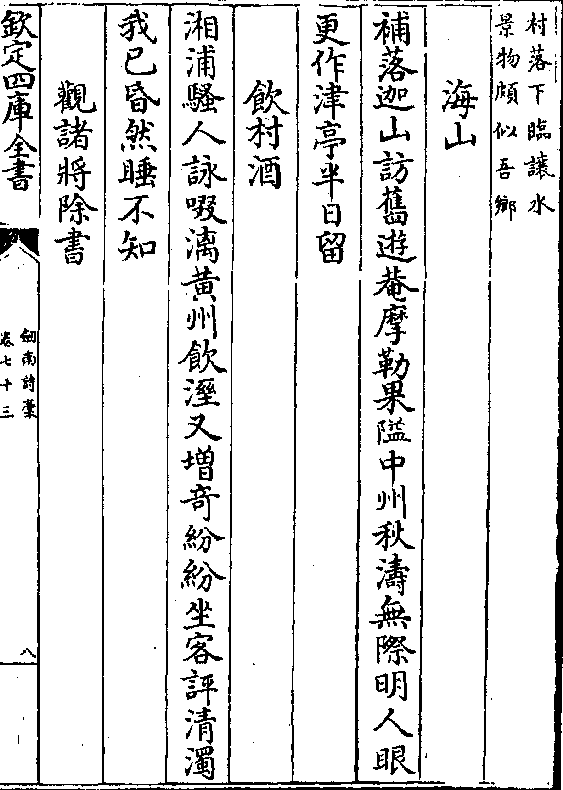 村落下臨讓水
景物頗似吾鄉
海山
補落迦山訪舊遊菴摩勒果隘中州秋濤無際明人眼
更作津亭半日留
飲村酒
湘浦騷人詠啜漓黃州飲溼又増竒紛紛坐客評清濁
我已昏然睡不知
觀諸將除書
欽定四庫全書
劒南詩藁
卷七十三
八